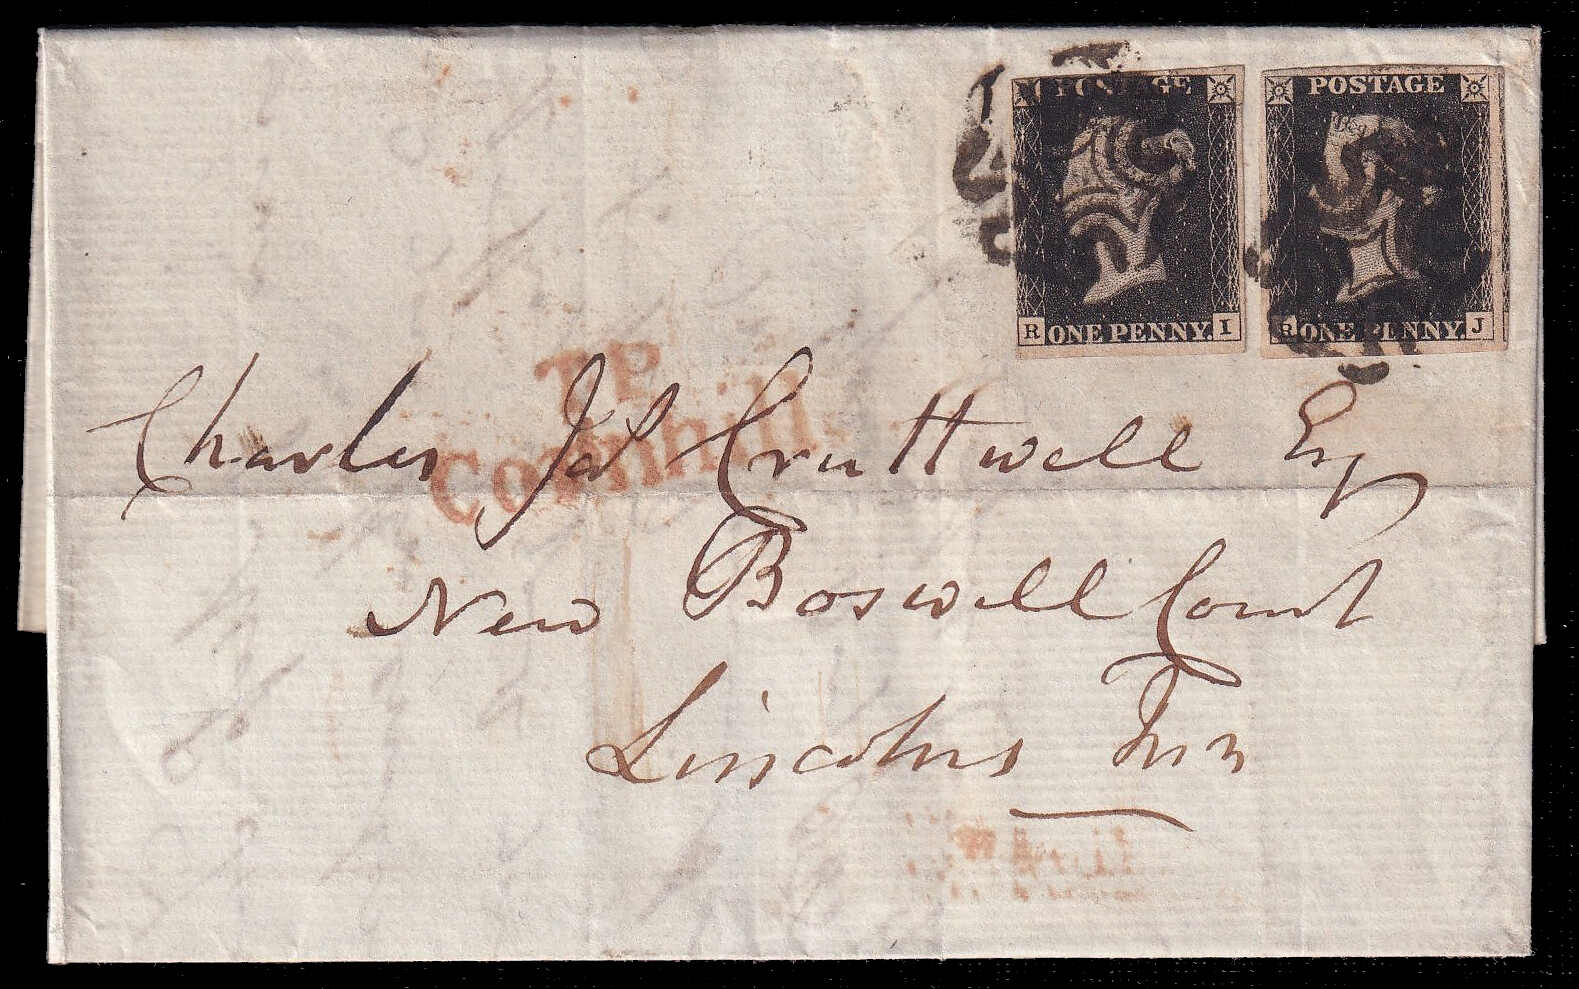 POSTAGE
R ONE PENNY. I
POSTAGE
R ONE PENNY. J
T.P
Cornhill
Charles Jas Cruttwell Esq
New Boswell Court
Lincolns Inn